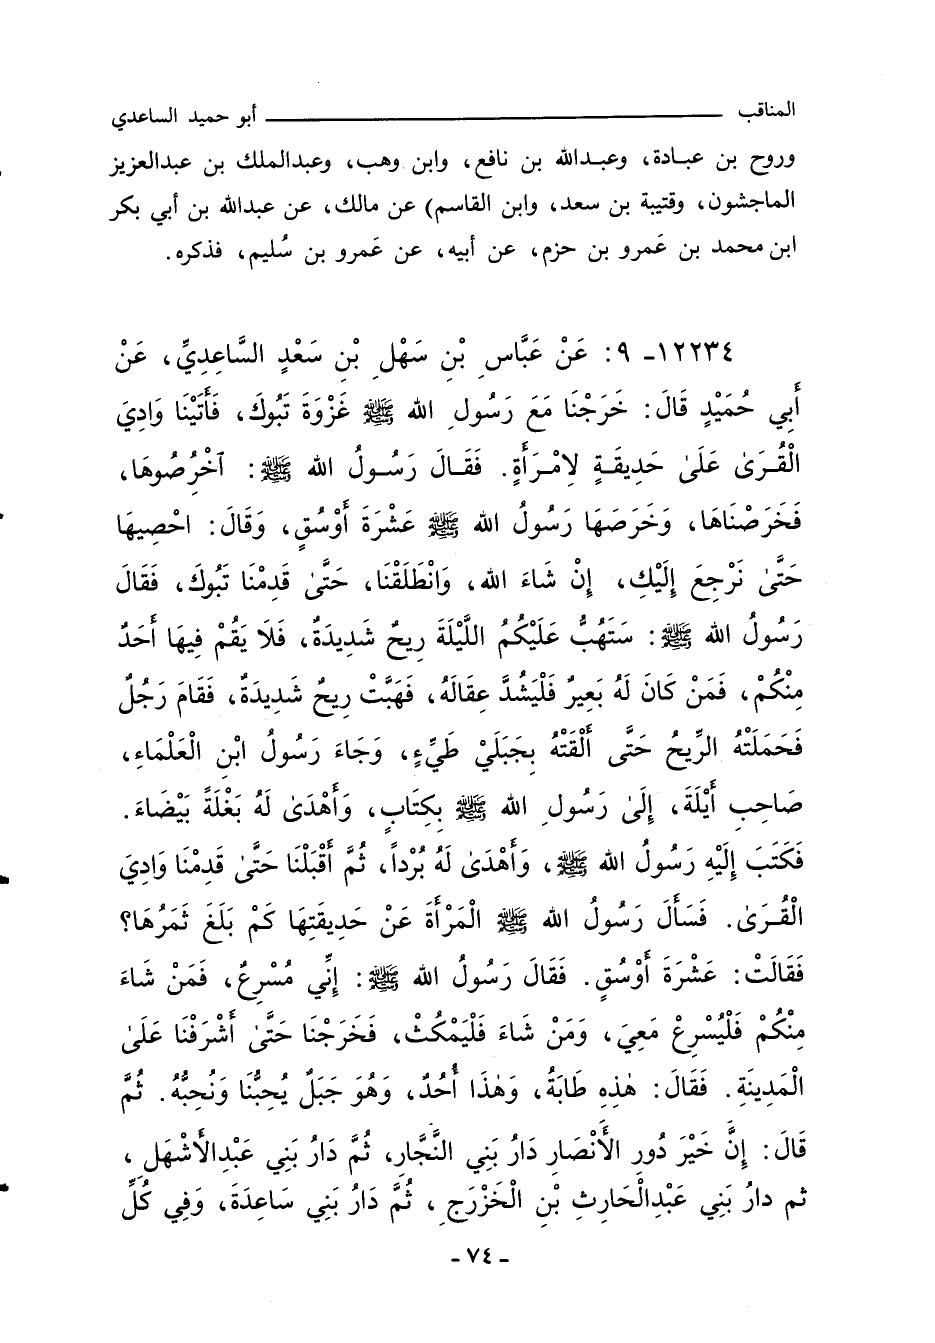 المناقب ـــــــــــــــــــــــــــــــــــــــــــ أبو حميد الساعدي
وروح بن عبـادة، وعبـدالله بن نافع، وابن وهب، وعبدالملك بن عبدالعزيز
الماجشون، وقتيبة بن سعد، وابن القاسم) عن مالك، عن عبدالله بن أبي بكر
ابن محمد بن عَمرو بن حزم، عن أبيه، عن عَمرو بن سُليم، فذكره.
١٢٢٣٤ـ ٩: عَنْ عَبَّاسِ بْنِ سَهْلِ بْنِ سَعْدٍ السَّاعِدِيِّ، عَنْ
أَبِي حُمَيْدٍ قَالَ: خَرَجْنَا مَعَ رَسُولِ الله ﷺ غَزْوَةَ تَبُوكَ، فَأَتَيْنَا وَادِيَ
الْقُـرَىٰ عَلَىٰ حَدِيقَـةٍ لِامْـرَأَةٍ. فَقَـالَ رَسُـولُ الله ﷺ: آخْرُصُوهَا،
فَخَرَصْنَاهَا، وَخَرَصَهَا رَسُولُ الله ﷺ عَشْرَةَ أَوْسُقٍ، وَقَالَ: احْصِيهَا
حَتَّىٰ نَرْجِعَ إِلَيْكِ، إِنْ شَاءَ الله، وَانْطَلَقْنَا، حَتَّىٰ قَدِمْنَا تَبُوكَ، فَقَالَ
رَسُولُ الله ﷺ: سَتَهُبُّ عَلَيْكُمُ اللَّيْلَةَ رِيحٌ شَدِيدَةٌ، فَلَا يَقُمْ فِيهَا أَحَدٌ
مِنْكُمْ، فَمَنْ كَانَ لَهُ بَعِيرٌ فَلْيَشُدَّ عِقَالَهُ، فَهَبَّتْ رِيحٌ شَدِيدَةٌ، فَقَامَ رَجُلٌ
فَحَمَلَتْهُ الرِّيحُ حَتَّى أَلْقَتْهُ بِجَبَلَيْ طَيِّءٍ، وَجَاءَ رَسُولُ ابْنِ الْعَلْمَاءِ،
صَاحِبِ أَيْلَةَ، إِلَىٰ رَسُولِ الله ﷺ بِكِتَابٍ، وَأَهْدَىٰ لَهُ بَغْلَةً بَيْضَاءَ.
فَكَتَبَ إِلَيْهِ رَسُولُ الله ﷺ، وَأَهْدَىٰ لَهُ بُرْداً، ثُمَّ أَقْبَلْنَا حَتَّىٰ قَدِمْنَا وَادِيَ
الْقُـرَىٰ. فَسَأَلَ رَسُولُ الله ﷺ الْمَرْأَةَ عَنْ حَدِيقَتِهَا كَمْ بَلَغَ ثَمَرُهَا؟
فَقَالَتْ: عَشْرَةَ أَوْسُقٍ. فَقَالَ رَسُولُ الله ﷺ: إِنِّي مُسْرِعٌ، فَمَنْ شَاءَ
مِنْكُمْ فَلْيُسْرِعْ مَعِيَ، وَمَنْ شَاءَ فَلْيَمْكُثْ، فَخَرَجْنَا حَتَّىٰ أَشْرَفْنَا عَلَىٰ
الْمَدِينَةِ. فَقَالَ: هٰذِهِ طَابَةُ، وَهٰذَا أُحُدٌ، وَهُوَ جَبَلٌ يُحِبُّنَا وَنُحِبُّهُ. ثُمَّ
قَالَ: إِنَّ خَيْرَ دُورِ الأَنْصَارِ دَارُ بَنِي النَّجَّارِ، ثُمَّ دَارُ بَنِي عَبْدِالأَشْهَلِ،
ثم دارُ بَنِي عَبْدِالْحَارِثِ بْنِ الْخَزْرَجِ، ثُمَّ دَارُ بَنِي سَاعِدَةَ، وَفِي كُلِّ
ـ ٧٤ ـ